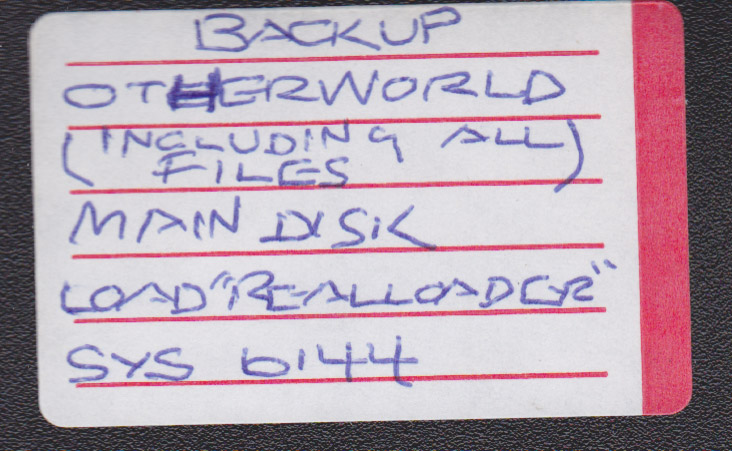 BACKUP
OTHERWORLD
(INCLUDING ALL
FILES)
MAIN DISK
LOAD"REALLOADER"
SYS 6144